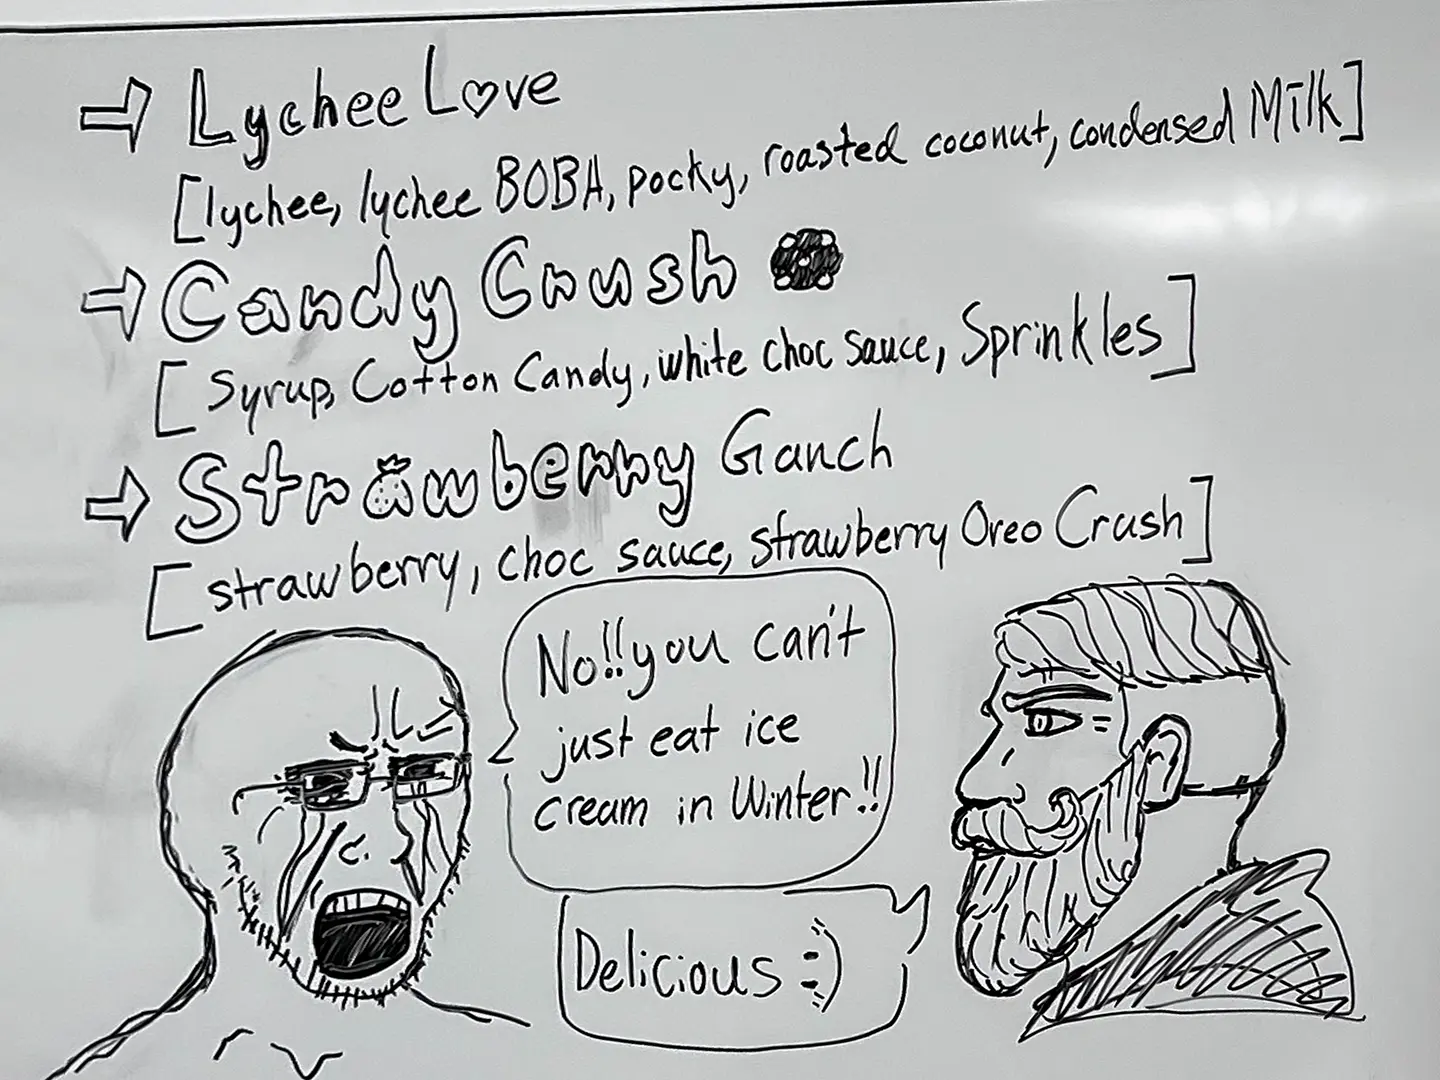 ⇒ Lychee L♡ve
[lychee, lychee BOBA, pocky, roasted coconut, condensed Milk]
⇒ Candy Crush
[Syrup, Cotton Candy, white choc sauce, Sprinkles]
⇒ Strawberry Ganch
[strawberry, choc sauce, strawberry Oreo Crush]
No!! you can't
just eat ice
cream in Winter!!
Delicious :)